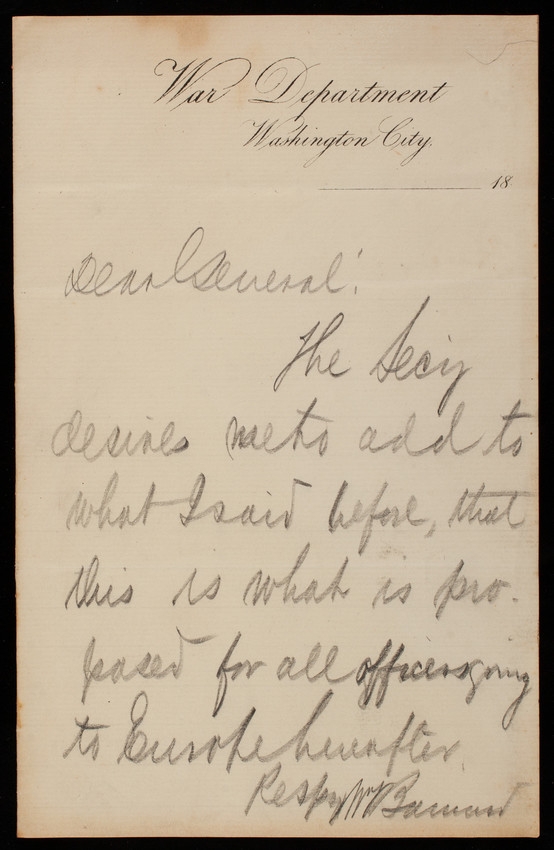 War Department
Washington City.
18
Dear General!
The Secy
desires me to add to
what I said before, that
this is what is pro-
posed for all officers going
to Europe hereafter.
Respy